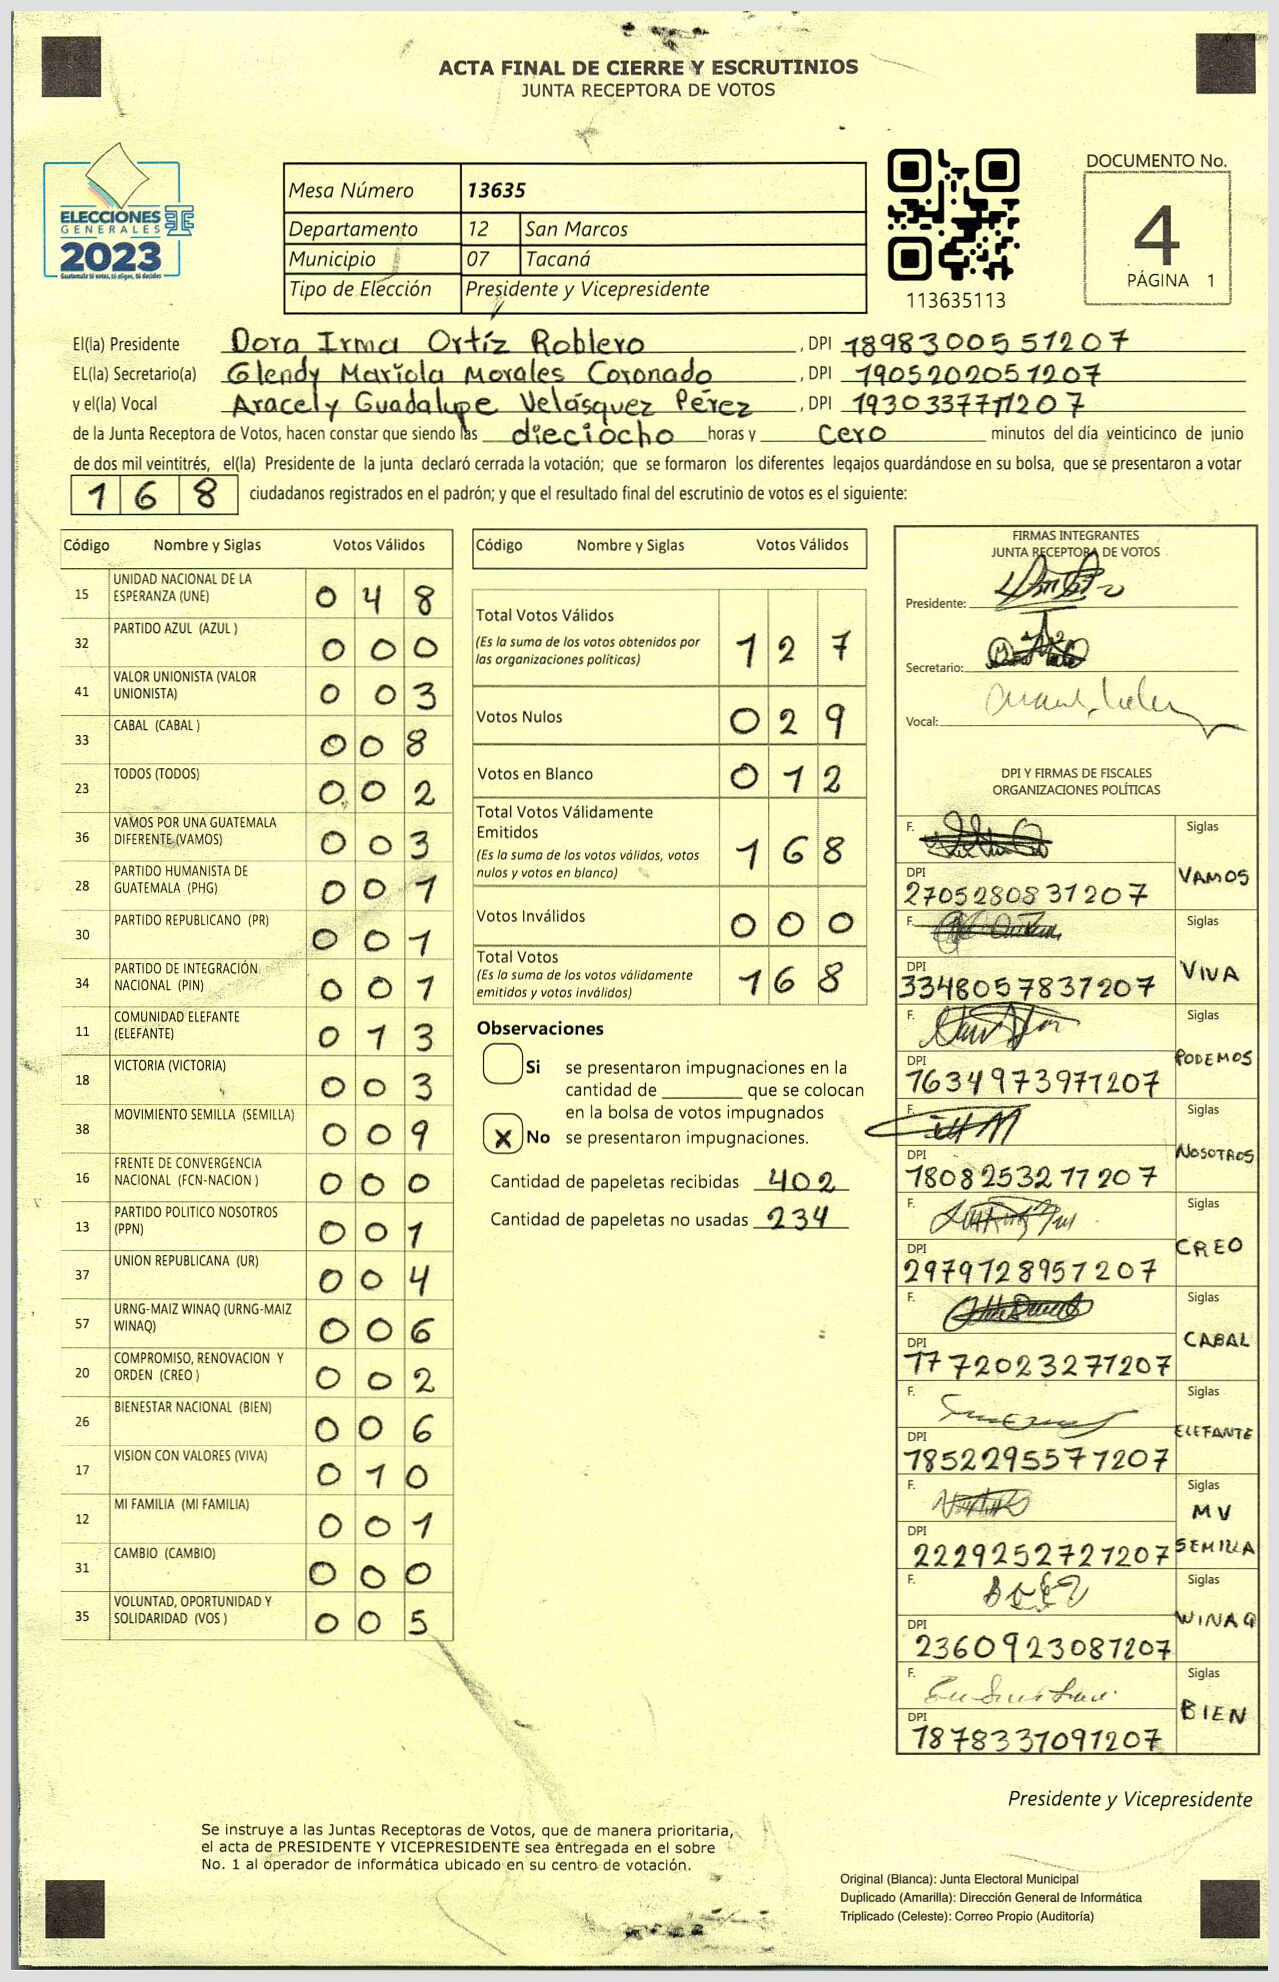 ACTA FINAL DE CIERRE Y ESCRUTINIOS
JUNTA RECEPTORA DE VOTOS
ELECCIONES
GENERALES
2023
Guatemala tú votas, tú eliges, tú decides
Mesa Número 13635
Departamento 12 San Marcos
Municipio 07 Tacaná
Tipo de Elección Presidente y Vicepresidente
113635113
DOCUMENTO No.
4
PÁGINA 1
El(la) Presidente Dora Irma Ortíz Roblero, DPI 1898300551207
EL(la) Secretario(a) Glendy Mariola Morales Coronado, DPI 1905202051207
y el(la) Vocal Aracely Guadalupe Velásquez Pérez, DPI 1930337711207
de la Junta Receptora de Votos, hacen constar que siendo las dieciocho horas y cero minutos del día veinticinco de junio
de dos mil veintitrés, el(la) Presidente de la junta declaró cerrada la votación; que se formaron los diferentes legajos guardándose en su bolsa, que se presentaron a votar
168 ciudadanos registrados en el padrón; y que el resultado final del escrutinio de votos es el siguiente:
Código Nombre y Siglas Votos Válidos
15 UNIDAD NACIONAL DE LA
ESPERANZA (UNE) 048
32 PARTIDO AZUL (AZUL ) 000
41 VALOR UNIONISTA (VALOR
UNIONISTA) 003
33 CABAL (CABAL ) 008
23 TODOS (TODOS) 002
36 VAMOS POR UNA GUATEMALA
DIFERENTE (VAMOS) 003
28 PARTIDO HUMANISTA DE
GUATEMALA (PHG) 001
30 PARTIDO REPUBLICANO (PR) 001
34 PARTIDO DE INTEGRACIÓN
NACIONAL (PIN) 001
11 COMUNIDAD ELEFANTE
(ELEFANTE) 013
18 VICTORIA (VICTORIA) 003
38 MOVIMIENTO SEMILLA (SEMILLA) 009
16 FRENTE DE CONVERGENCIA
NACIONAL (FCN-NACION ) 000
13 PARTIDO POLITICO NOSOTROS
(PPN) 001
37 UNION REPUBLICANA (UR) 004
57 URNG-MAIZ WINAQ (URNG-MAIZ
WINAQ) 006
20 COMPROMISO, RENOVACION Y
ORDEN (CREO ) 002
26 BIENESTAR NACIONAL (BIEN) 006
17 VISION CON VALORES (VIVA) 010
12 MI FAMILIA (MI FAMILIA) 001
31 CAMBIO (CAMBIO) 000
35 VOLUNTAD, OPORTUNIDAD Y
SOLIDARIDAD (VOS ) 005
Código Nombre y Siglas Votos Válidos
Total Votos Válidos 127
(Es la suma de los votos obtenidos por
las organizaciones políticas)
Votos Nulos 029
Votos en Blanco 012
Total Votos Válidamente
Emitidos 168
(Es la suma de los votos válidos, votos
nulos y votos en blanco)
Votos Inválidos 000
Total Votos 168
(Es la suma de los votos válidamente
emitidos y votos inválidos)
Observaciones
Si se presentaron impugnaciones en la
cantidad de ________ que se colocan
en la bolsa de votos impugnados
X No se presentaron impugnaciones.
Cantidad de papeletas recibidas 402
Cantidad de papeletas no usadas 234
FIRMAS INTEGRANTES
JUNTA RECEPTORA DE VOTOS
Presidente:
Secretario:
Vocal:
DPI Y FIRMAS DE FISCALES
ORGANIZACIONES POLÍTICAS
F. Siglas
DPI VAMOS
2705280831207
F. Siglas
DPI VIVA
3348057831207
F. Siglas
DPI PODEMOS
1634973971207
F. Siglas
DPI NOSOTROS
1808253211207
F. Siglas
DPI CREO
2979128951207
F. Siglas
DPI CABAL
1772023271207
F. Siglas
DPI ELEFANTE
1852295571207
F. Siglas
MV
DPI SEMILLA
2229252721207
F. Siglas
DPI WINAQ
2360923081207
F. Siglas
DPI BIEN
1878331091207
Presidente y Vicepresidente
Se instruye a las Juntas Receptoras de Votos, que de manera prioritaria,
el acta de PRESIDENTE Y VICEPRESIDENTE sea entregada en el sobre
No. 1 al operador de informática ubicado en su centro de votación.
Original (Blanca): Junta Electoral Municipal
Duplicado (Amarilla): Dirección General de Informática
Triplicado (Celeste): Correo Propio (Auditoría)